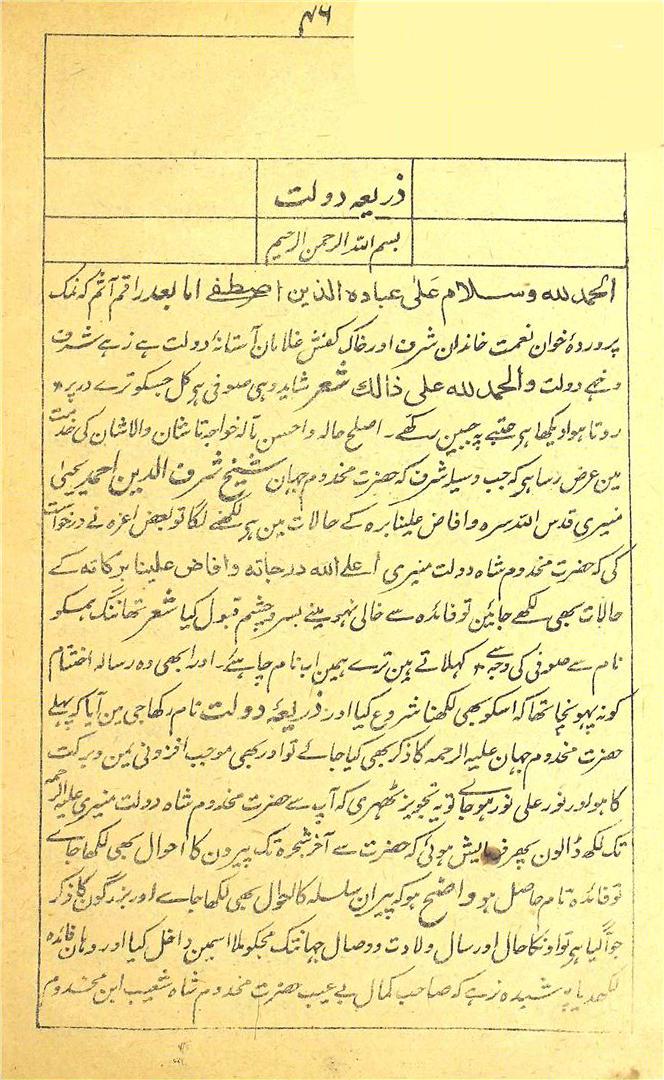 ۴۶
ذریعہ دولت
بسم اللہ الرحمن الرحیم
الحمد للہ وسلام علی عبادہ الذین اصطفے اما بعد راقم آثم کہ نمک
پروردۂ خوان نعمت خاندان شرف اور خاک کفش غلامان آستانۂ دولت ہے زہے شرف
و خہے دولت والحمد للہ علی ذالک شعر شاید وہی صوفی ہی کل جسکو ترے در پر *
روتا ہوا دیکھا ہی عتبے پہ جبین رکھے ۔ اصلح حالہ واحسن مآلہ خواجہ تاشان والاشان کی خدمت
مین عرض رسا ہی کہ جب وسیلہ شرف کہ حضرت مخدوم جہان شیخ شرف الدین احمد یحییٰ
منیری قدس اللہ سرہ وافاض علینا برہ کے حالات مین ہی لکھنے لگا تو بعض اعزہ نے درخواست
کی کہ حضرت مخدوم شاہ دولت منیری اعلے اللہ درجاتہ وافاض علینا برکاتہ کے
حالات بھی لکھے جائین تو فائدہ سے خالی نہو مینے بسروچشم قبول کیا شعر تھا ننگ ہمکو
نام سے صوفی کی وجہ سے * کہلاتے ہین ترے ہمین اب نام چاہئے ۔ اور ابھی وہ رسالہ اختتام
کو نہ پہونچا تھا کہ اسکو بھی لکھنا شروع کیا اور ذریعۂ دولت نام رکھا جی مین آیا کہ پہلے
حضرت مخدوم جہان علیہ الرحمہ کا ذکر بھی کیا جائے تو اور بھی موجب افزونی یمن و برکت
کا ہو اور نور علی نور ہو جاے تو یہ تجویز ٹھہری کہ آپ سے حضرت مخدوم شاہ دولت منیری علیہ الرحمہ
تک لکھ ڈالون پھر فرمایش ہوئی کہ حضرت سے آخر شجرہ تک پیرون کا احوال بھی لکھا جاے
تو فائدہ تام حاصل ہو واضح ہو کہ پیران سلسلہ کا احوال بھی لکھا جاے اور بزرگون کا ذکر
جو آگیا ہی تو اونکا حال اور سال ولادت و وصال جہانتک مجکو ملا اسمین داخل کیا اور وہان فائدہ
لکھدیا پوشیدہ نرہے کہ صاحب کمال بے عیب حضرت مخدوم شاہ شعیب ابن مخدوم